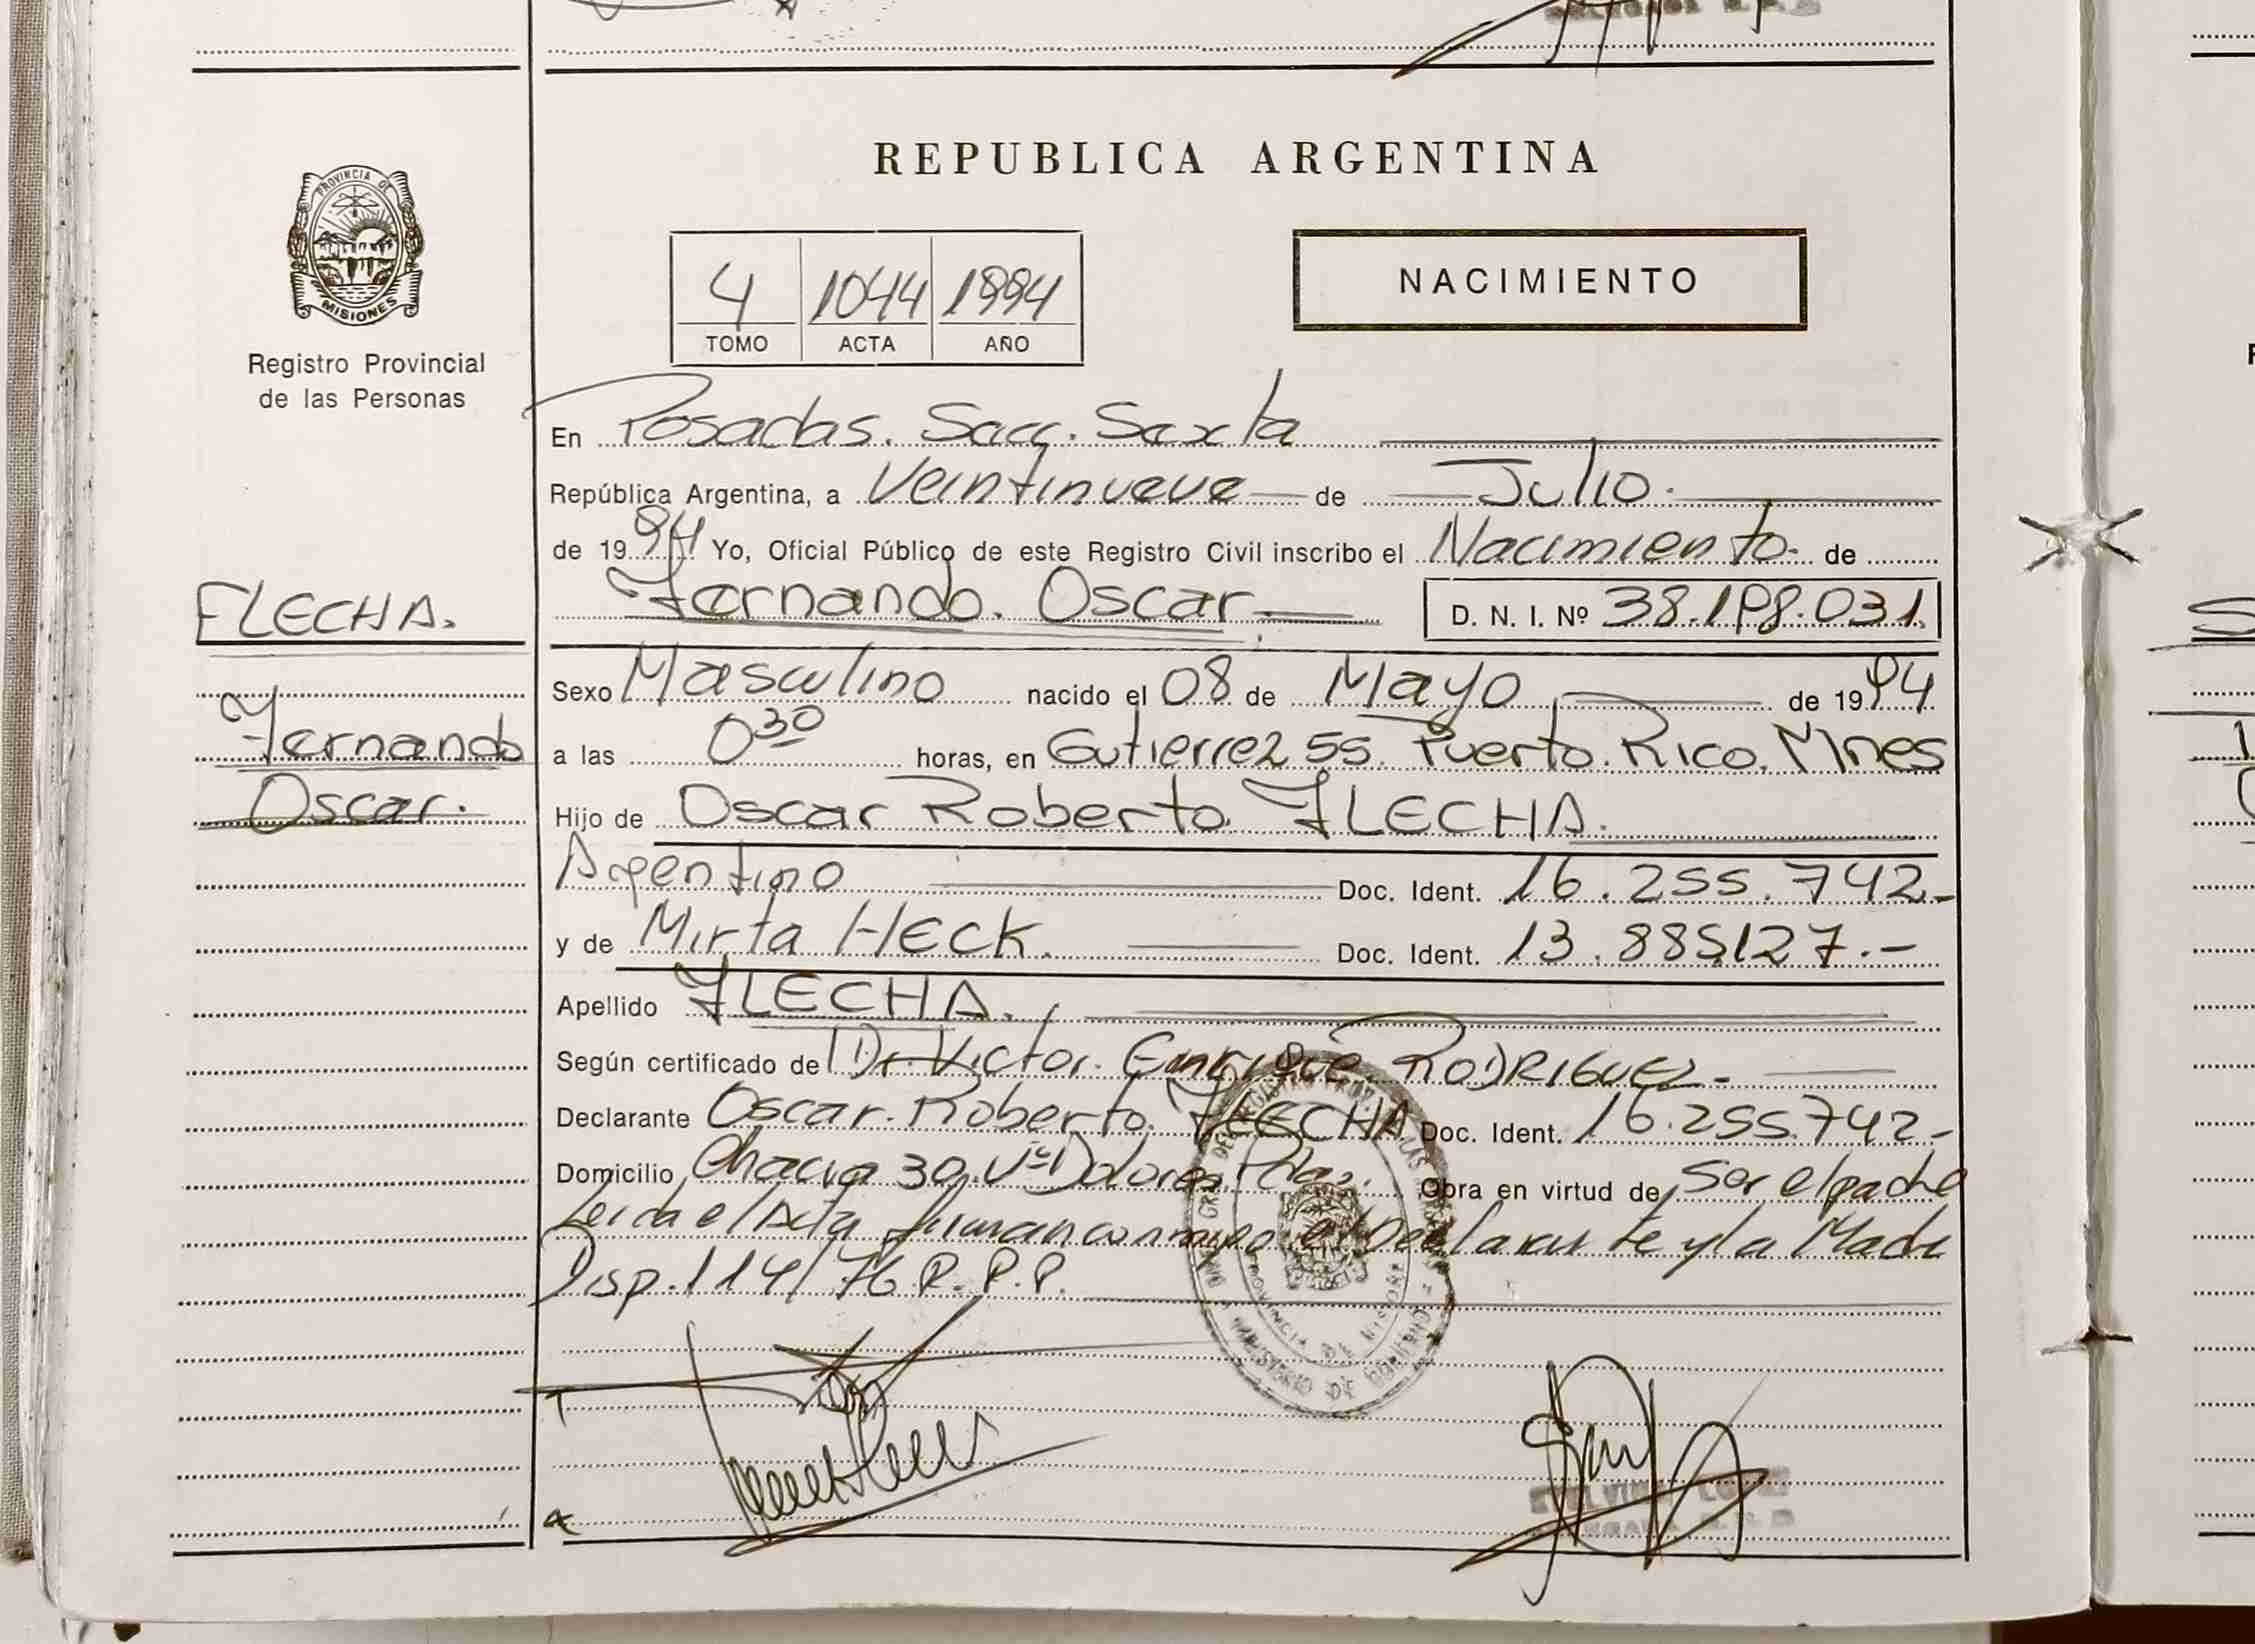 REPUBLICA ARGENTINA
PROVINCIA DE
MISIONES
Registro Provincial
de las Personas
4 1044 1994
TOMO ACTA AÑO
NACIMIENTO
En Posadas. Secc. Sexta
República Argentina, a Veintinueve de Julio.
de 1994 Yo, Oficial Público de este Registro Civil inscribo el Nacimiento. de
FLECHA.
Fernando
Oscar.
Fernando. Oscar D. N. I. Nº 38.198.031.
Sexo Masculino nacido el 08 de Mayo de 1994
a las 0 30 horas, en Gutierrez 55. Puerto. Rico. Mnes
Hijo de Oscar Roberto FLECHA.
Argentino Doc. Ident. 16.255.742.-
y de Mirta HECK. Doc. Ident. 13.885.127.-
Apellido FLECHA.
Según certificado de Dr. Victor. Enrique RODRIGUEZ.-
Declarante Oscar. Roberto. FLECHA Doc. Ident. 16.255.742-
Domicilio Chacra 30. Vª Dolores. Pdas. Obra en virtud de ser el padre
Leida el Acta firman conmigo el Declarante y la Madre
Disp. 114/76 R.P.P.
PROVINCIA DE MISIONES